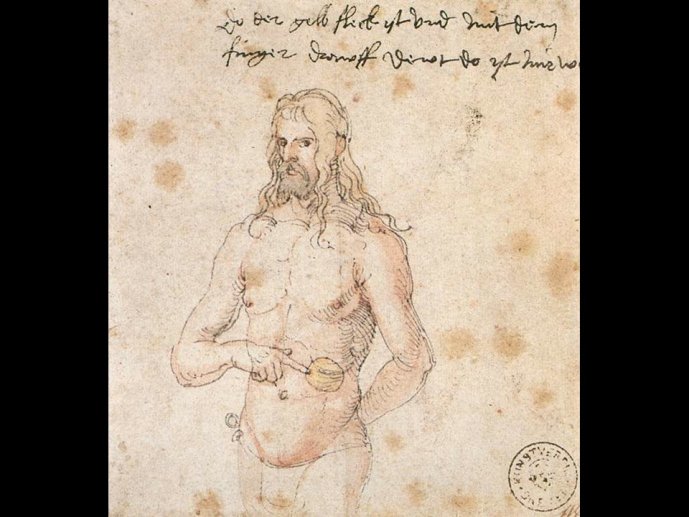 Do der gelb fleck yst vnd mit dem
finger drawff dewt do yst mir we